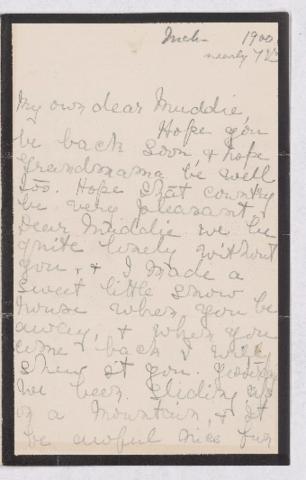 Inch 1900
nearly 7½
My own dear Muddie,
Hope you
be back soon & hope
Grandmama be well
too. Hope that country
be very pleasant.
Dear Muddie we be
quite lonely without
you, & I made a
sweet little snow
house when you be
away, & when you
come back I will
show it you. Yesterday
we been sliding up
on a Mountain, & it
be awful nice fun